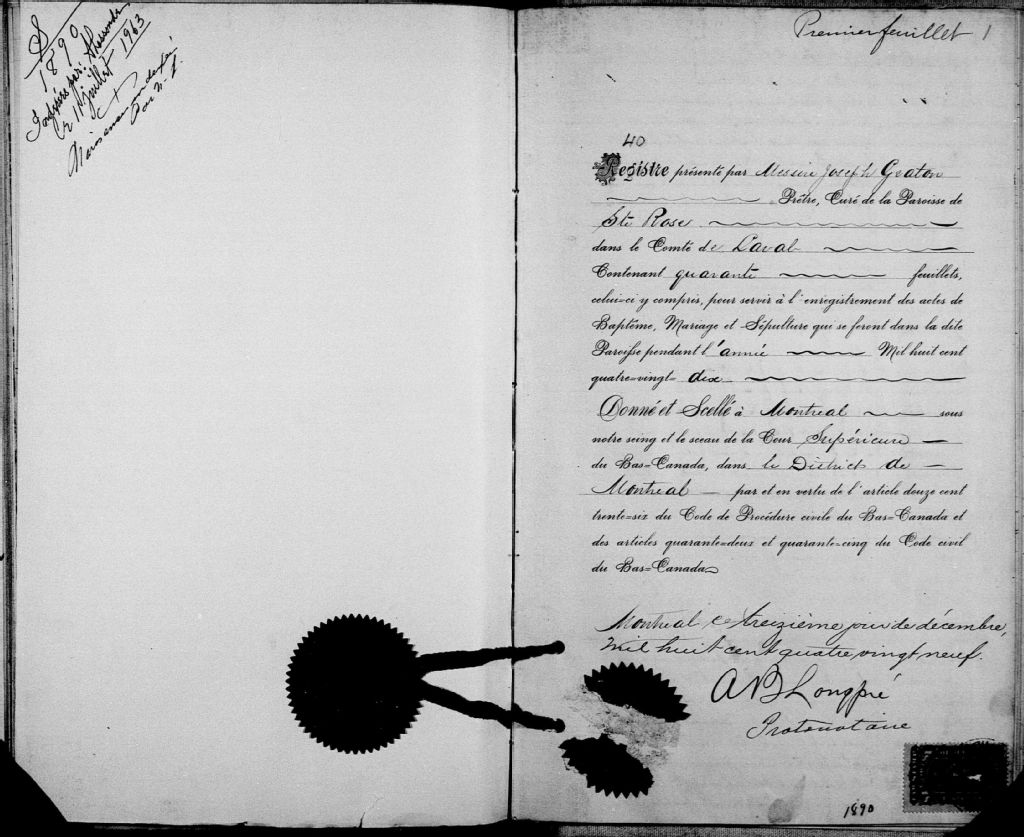 S
1890
par:
Ce 11 juillet 1963
par
Premier feuillet 1
40
Registre présenté par Messire Joseph Graton
Prêtre, Curé de la Paroisse de
Ste Rose
dans le Comté de Laval
Contenant quarante feuillets,
celui=ci y compris, pour servir à l'enregistrement des actes de
Baptême, Mariage et Sépulture qui se feront dans la dite
Paroisse pendant l'année Mil huit cent
quatre=vingt= dix
Donné et Scellé à Montreal sous
notre seing et le sceau de la Cour Supérieure
du Bas=Canada, dans le District de
Montreal par et en vertu de l'article douze cent
trente=six du Code de Procédure civile du Bas=Canada et
des articles quarante=deux et quarante=cinq du Code civil
du Bas=Canada
Montreal ce treizième jour de décembre,
Mil huit cent quatre vingt neuf.
AB Longpré
Protonotaire
1890